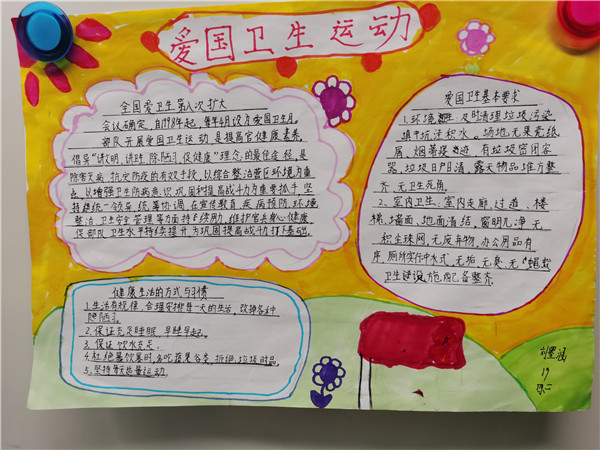 爱国卫生运动
全国爱卫生第八次扩大
会议确定，自1978年起，每年4月设为爱国卫生月。
部队开展爱国卫生运动，是提高官健康素养，
倡导"讲文明、讲卫生、除陋习、促健康"理念，的最佳途径，是
除害灭病、抗灾防疫的有效手段，以综合整治营区环境为重
点，以增强卫生防病意识、巩固和提高战斗力为重要抓手，坚
持超统一领导、统筹协调，在宣传教育、疾病预防、环境
整治、卫生安全管理等方面持续用力，维护官兵身心健康，
促部队卫生水平持续提升为巩固提高战斗力打基础。
爱国卫生基本要求
1.环境卫生，及时清理垃圾污染
填平坑洼积水，场地无果壳纸
屑、烟蒂痰迹，有垃圾密闭容
器，垃圾日产日清，露天物品堆方整
齐，无卫生死角。
2、室内卫生：室内走廊、过道、楼
梯、墙面、地面清结，窗明几净无
积尘珠网，无废弃物，办公用品有
序，厕所实行冲水式，无垢、无臭、无
卫生建设施配备整齐
健康生活的方式与习惯
1.生活有规律，合理安排每一天的生活，改掉各种
陋习。
2、保证充足睡眠，早睡早起。
3、保证饮水充足。
4.杜绝暴饮暴食，多吃蔬果谷类，拒绝垃圾食品
5、坚持每天适量运动
19